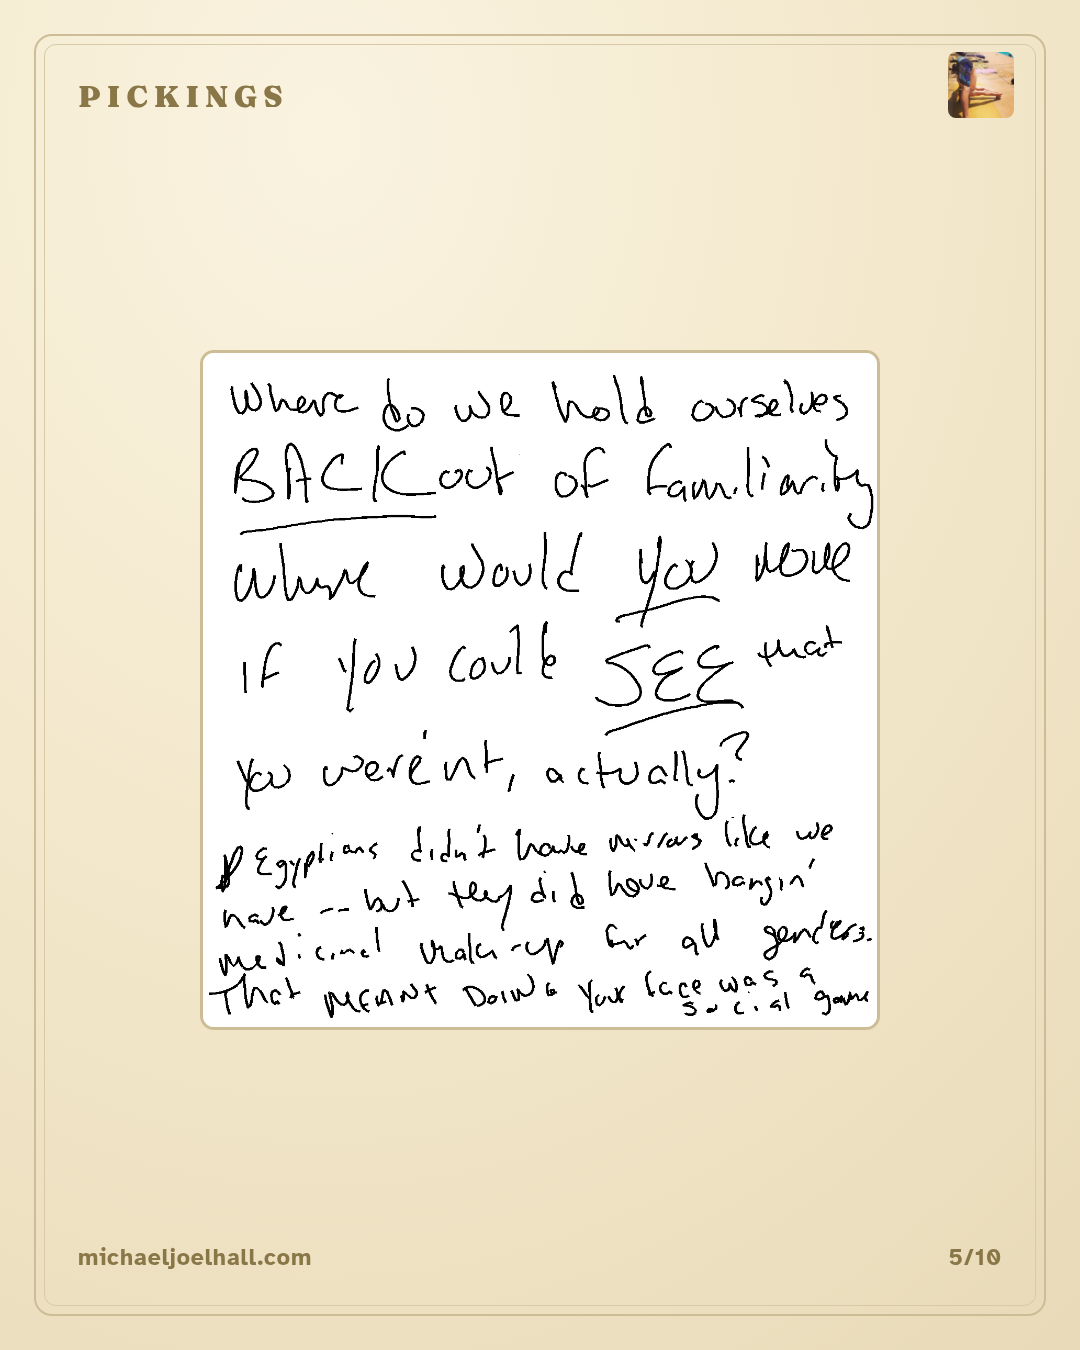 PICKINGS
Where do we hold ourselves
BACK out of familiarity
where would you move
if you could SEE that
you were'nt, actually?
Egyptians didn't have mirrors like we
have -- but they did have bangin'
medicinal make-up for all genders.
That MEANT DOING your face was a
social game
michaeljoelhall.com
5/10